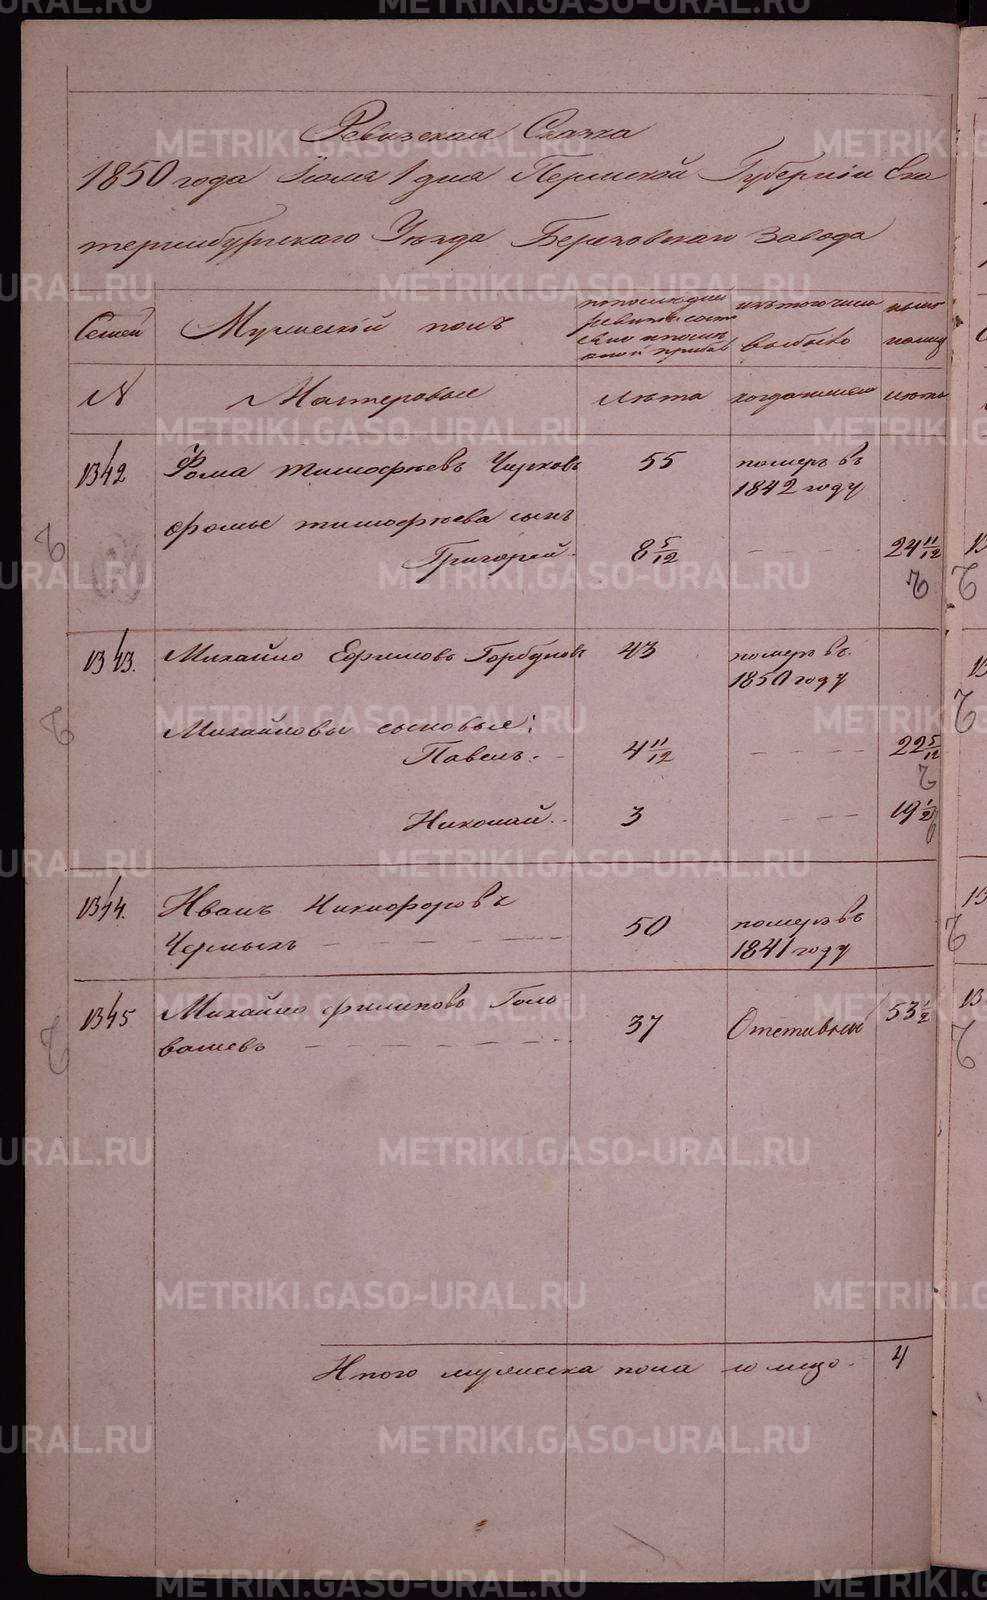 Ревизская Сказка
1850 года Июля 1 дня Пермской Губерніи Ека
теринбургскаго Уѣзда Березовскаго Завода
Семей
Мужескій полъ
по последней
ревизіи состо
яло и после
оной прибыло
изъ того числа
выбыло
ныне
налицо
N
Мастеровые
Лѣта
когда именно
лѣта
1342
Фома Тимофѣевъ Чирковъ
55
померъ въ
1842 году
Фомы Тимофѣева сынъ
Григорей.
8 5/12
24 11/12
1343.
Михайло Ефимовъ Горбуновъ
43
померъ въ
1850 году
Михайловы сыновья:
Павелъ.
4 11/12
22 5/12
Николай.
3
19 1/2
1344.
Иванъ Никифоровъ
Черныхъ
50
померъ въ
1841 году
1345
Михайло Филиповъ Голо
вачевъ
37
53 1/2
Итого мужеска пола на лицо.
4
METRIKI.GASO-URAL.RU